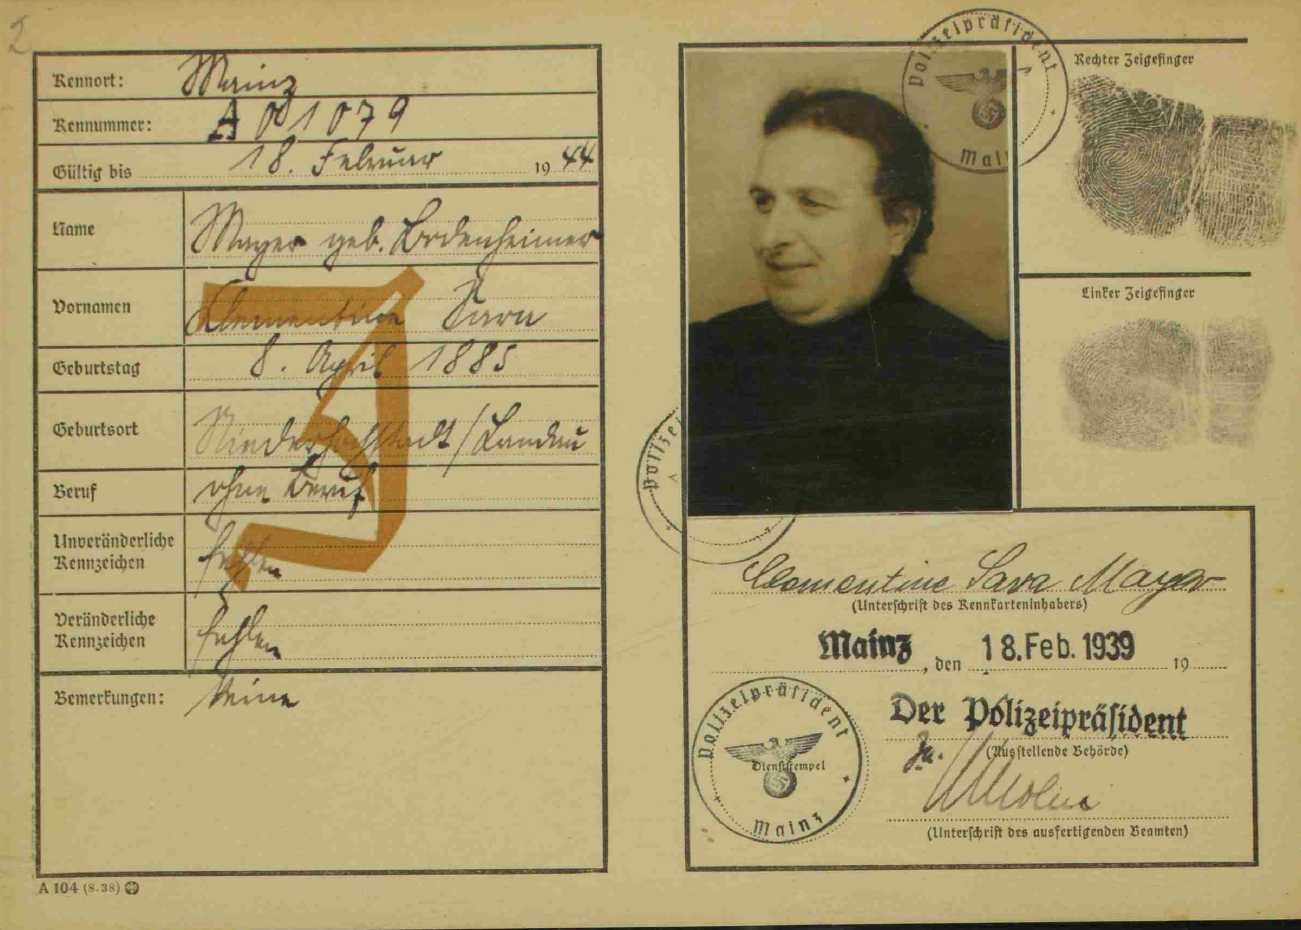 2
Kennort: Mainz
Kennummer: A 001079
Gültig bis 18. Februar 1944
Name Mayer geb. Bodenheimer
Vornamen Clementine Sara
Geburtstag 8. April 1885
Geburtsort Niederhochstadt/Landau
Beruf ohne Beruf
Unveränderliche
Kennzeichen fehlen
Veränderliche
Kennzeichen fehlen
Bemerkungen: Keine
J
A 104 (8.38)
Polizeipräsident
Mainz
Rechter Zeigefinger
Linker Zeigefinger
Polizei
Clementine Sara Mayer
(Unterschrift des Kennkarteninhabers)
Mainz, den 18. Feb. 1939 19
Der Polizeipräsident
(Ausstellende Behörde)
Polizeipräsident
Dienststempel
Mainz
(Unterschrift des ausfertigenden Beamten)